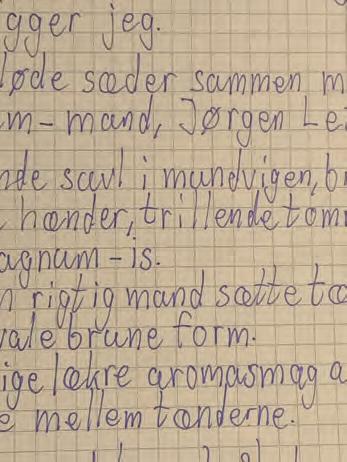 gger jeg.
løde sæder sammen m
m-mand, Jørgen Le
nde savl i mundvigen, b
hænder, trillende tom
agnum-is.
n rigtig mand sætte tæ
vale brune form.
ige lækre aromasmag a
e mellem tænderne.